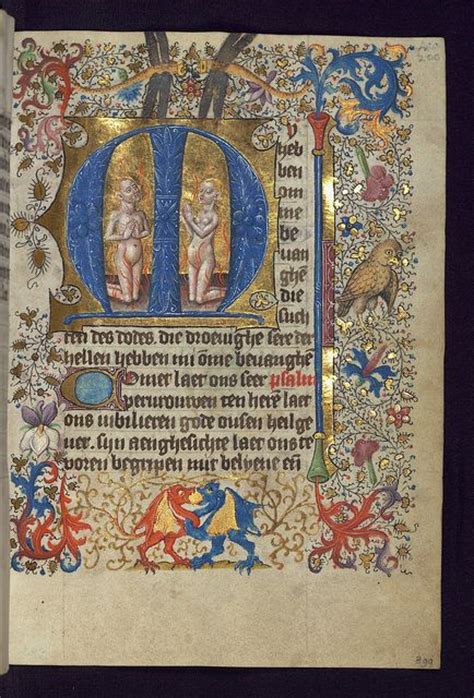 200
My
heb
ben
om
me
be
uan
ghe
die
such
ten des dodes. die droeuighe sere der
hellen hebben mi ōme beuanghe
Comet laet ons seer psalm
verurouwen den here laet
ons iubilieren gode onsen heilge
uer. syn aenghesichte laet ons te
voren begripen mit belyene eñ